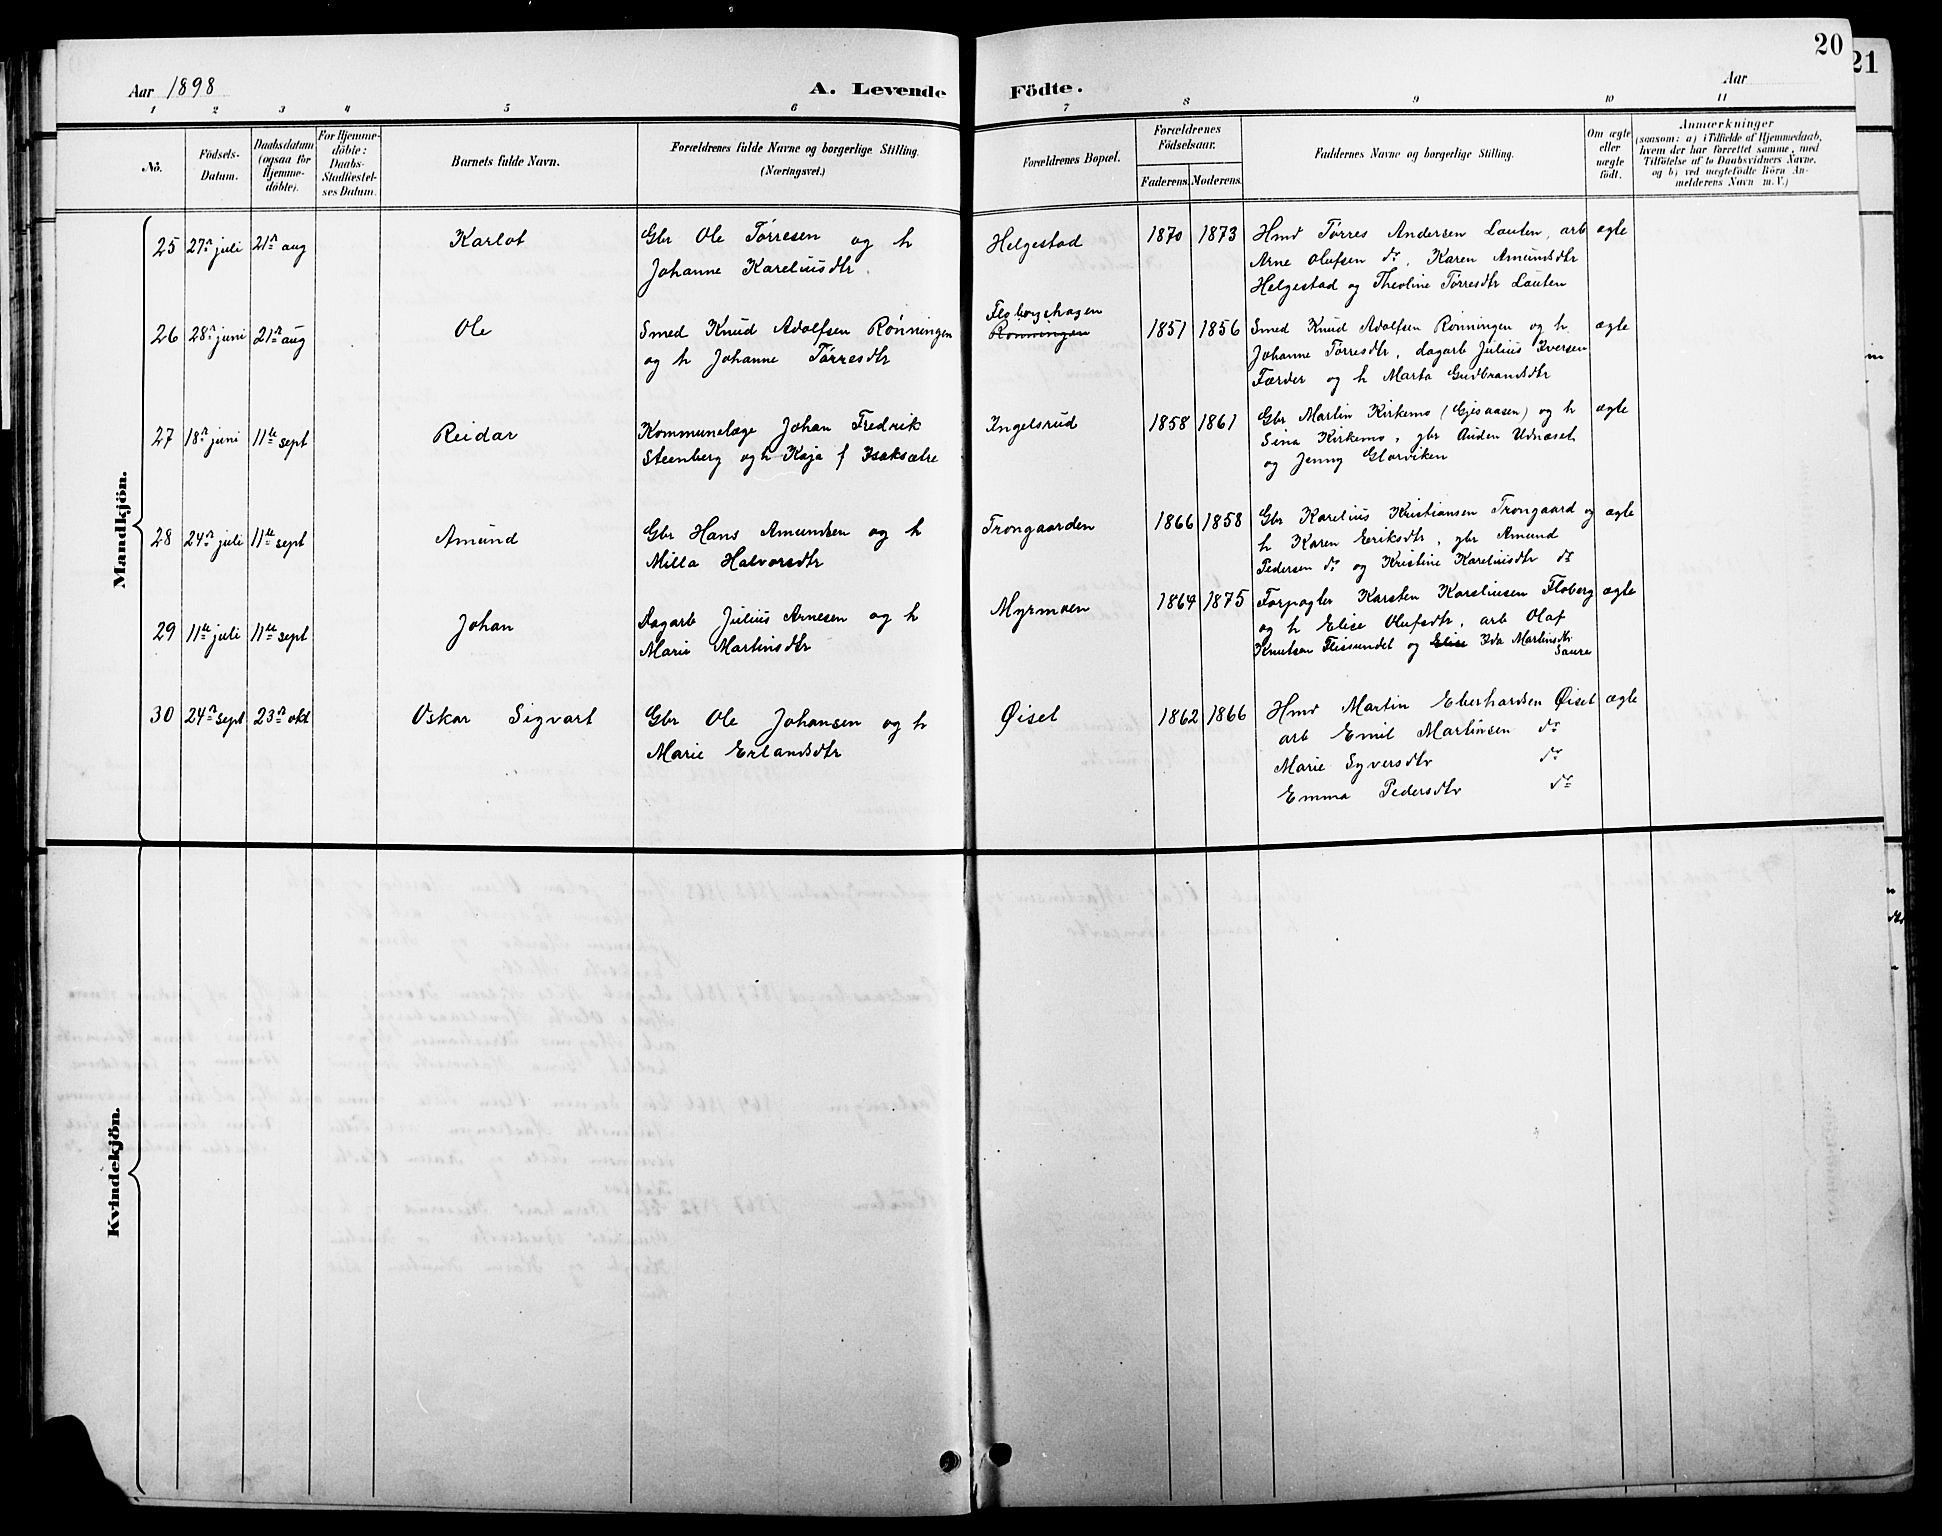 20
21
Aar 1898
A. Levende Födte.
Aar
1 2 3 4 5 6 7 8 9 10 11
No.
Födsels-Datum.
Daabsdatum (ogsaa for Hjemme-döbte).
For Hjemme-döbte: Daabs-Stadfæstel-ses Datum.
Barnets fulde Navn.
Forældrenes fulde Navne og borgerlige Stilling.
(Næringsvei.)
Forældrenes Bopæl.
Forældrenes Födselsaar.
Faderens. Moderens.
Faddernes Navne og borgerlige Stilling.
Om ægte eller uægte födt.
Anmærkninger
(saasom: a) i Tilfælde af Hjemmedaab,
hvem der har forrettet samme, med
Tilföielse af to Daabsvidners Navne,
og b) ved uægtefödte Börn An-
melderens Navn m.V.)
Mandkjön.
25 27n juli 21n aug Karlot Gbr Ole Tørresen og h Helgestad 1870 1873 Hmd Tørres Andersen Lauten, arb ægte
Johanne Kareliusdtr. Arne Olufsen do, Karen Amundsdtr
Helgestad og Theoline Tørresdtr Lauten
Floberghagen
26 28n juni 21n aug Ole Smed Knud Adolfsen Rønningen Rønningen 1851 1856 Smed Knud Adolfsen Rønningen og h ægte
og h Johanne Tørresdtr Johanne Tørresdtr, dagarb Julius Iversen
Færder og h Marta Gudbrandsdtr
27 18n juni 11te sept Reidar Kommunelæge Johan Fredrik Ingelsrud 1858 1861 Gbr Martin Kirkemo (Gjesaasen) og h ægte
Steenberg og h Kaja f Isaksætre Sina Kirkemo, gbr Auden Udnæset
og Jenny Glorviken
28 24n juli 11te sept Amund Gbr Hans Amundsen og h Trongaarden 1866 1858 Gbr Karelius Kristiansen Trongaard og ægte
Milla Halvorsdtr h Karen Eriksdtr, gbr Amund
Pedersen do og Kristine Kareliusdtr do
29 11te juli 11te sept Johan Dagarb Julius Arnesen og h Myrmoen 1864 1875 Forpagter Karsten Karelinsen Floberg ægte
Marie Martinsdtr og h Elise Olufsdtr, arb Olaf
Knutsen Flissundet og Elise Ida Martinsdtr
Saure
30 24n sept 23n okt Oskar Sigvart Gbr Ole Johansen og h Øiset 1862 1866 Hmd Martin Eberhardsen Øiset ægte
Marie Erlandsdtr arb Emil Martinsen do
Marie Syversdtr do
Emma Pedersdtr do
Kvindekjön.